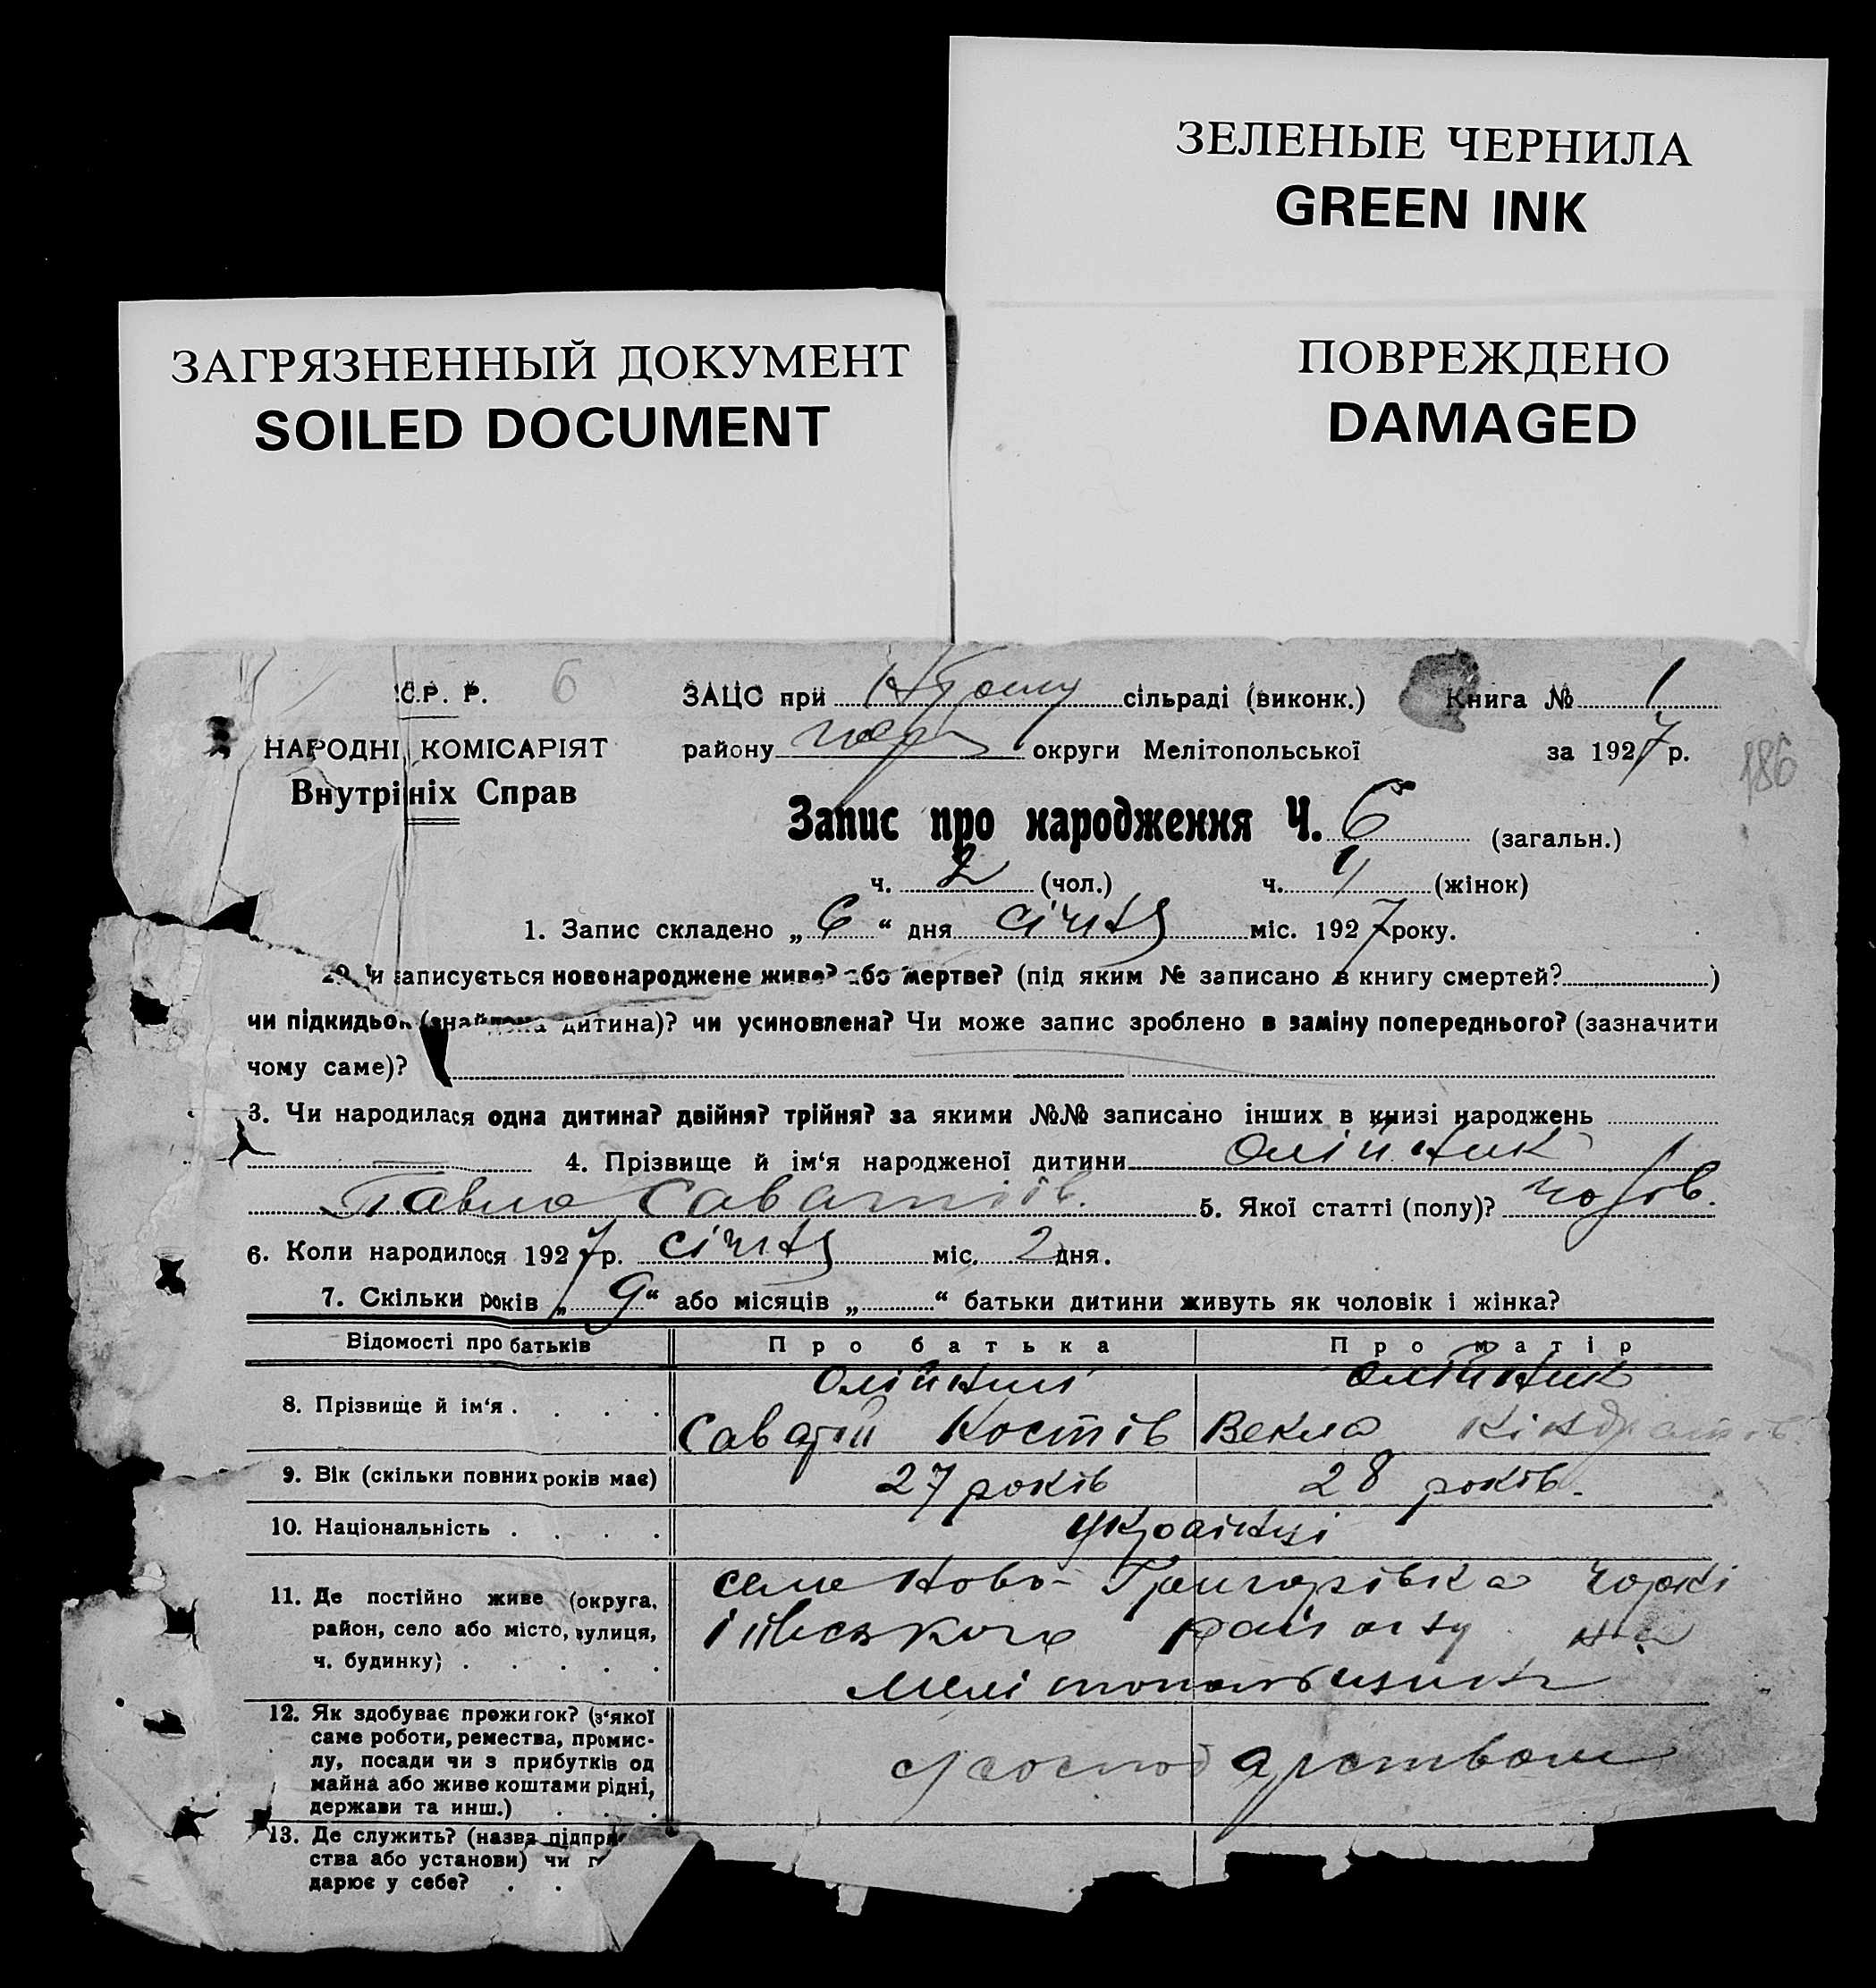 ЗЕЛЕНЫЕ ЧЕРНИЛА
GREEN INK
ЗАГРЯЗНЕННЫЙ ДОКУМЕНТ
SOILED DOCUMENT
ПОВРЕЖДЕНО
DAMAGED
С.Р. Р. 6
ЗАЦС при сільраді (виконк.) Книга № 1
НАРОДНІ КОМІСАРІЯТ
району округи Мелітопольської за 1927 р.
186
Внутрішніх Справ
Запис про народження Ч. 6 (загальн.)
ч. 2 (чол.) ч. (жінок)
1. Запис складено „ 6 “ дня січня міс. 1927 року.
записується новонароджене живе? або мертве? (під яким № записано в книгу смертей? )
чи підкидьок (знайдена дитина)? чи усиновлена? Чи може запис зроблено в заміну попереднього? (зазначити
чому саме)?
3. Чи народилася одна дитина? двійня? трійня? за якими №№ записано інших в книзі народжень
4. Прізвище й ім‘я народженої дитини Олійник
Павло Саватіїв. 5. Якої статті (полу)? чолов.
6. Коли народилося 1927 р. січня міс. 2 дня.
7. Скільки років „ 9 “ або місяців „ “ батьки дитини живуть як чоловік і жінка?
Відомості про батьків Про батька Про матір
8. Прізвище й ім‘я . . . . Олійник
Саватій Костів Векла Кіндратів.
9. Вік (скільки повних років має) 27 років 28 років.
10. Національність . . . . українці
11. Де постійно живе (округа, село Ново-Григорівка
район, село або місто, вулиця, району на
ч. будинку) . . . . . Мелітопольщини
12. Як здобуває прожиток? (з‘якої
саме роботи, ремества, промис-
лу, посади чи з прибутків од
майна або живе коштами рідні, господарством
держави та инш.) . . .
13. Де служить? (назва підпри
ства або установи) чи г
дарює у себе? . .